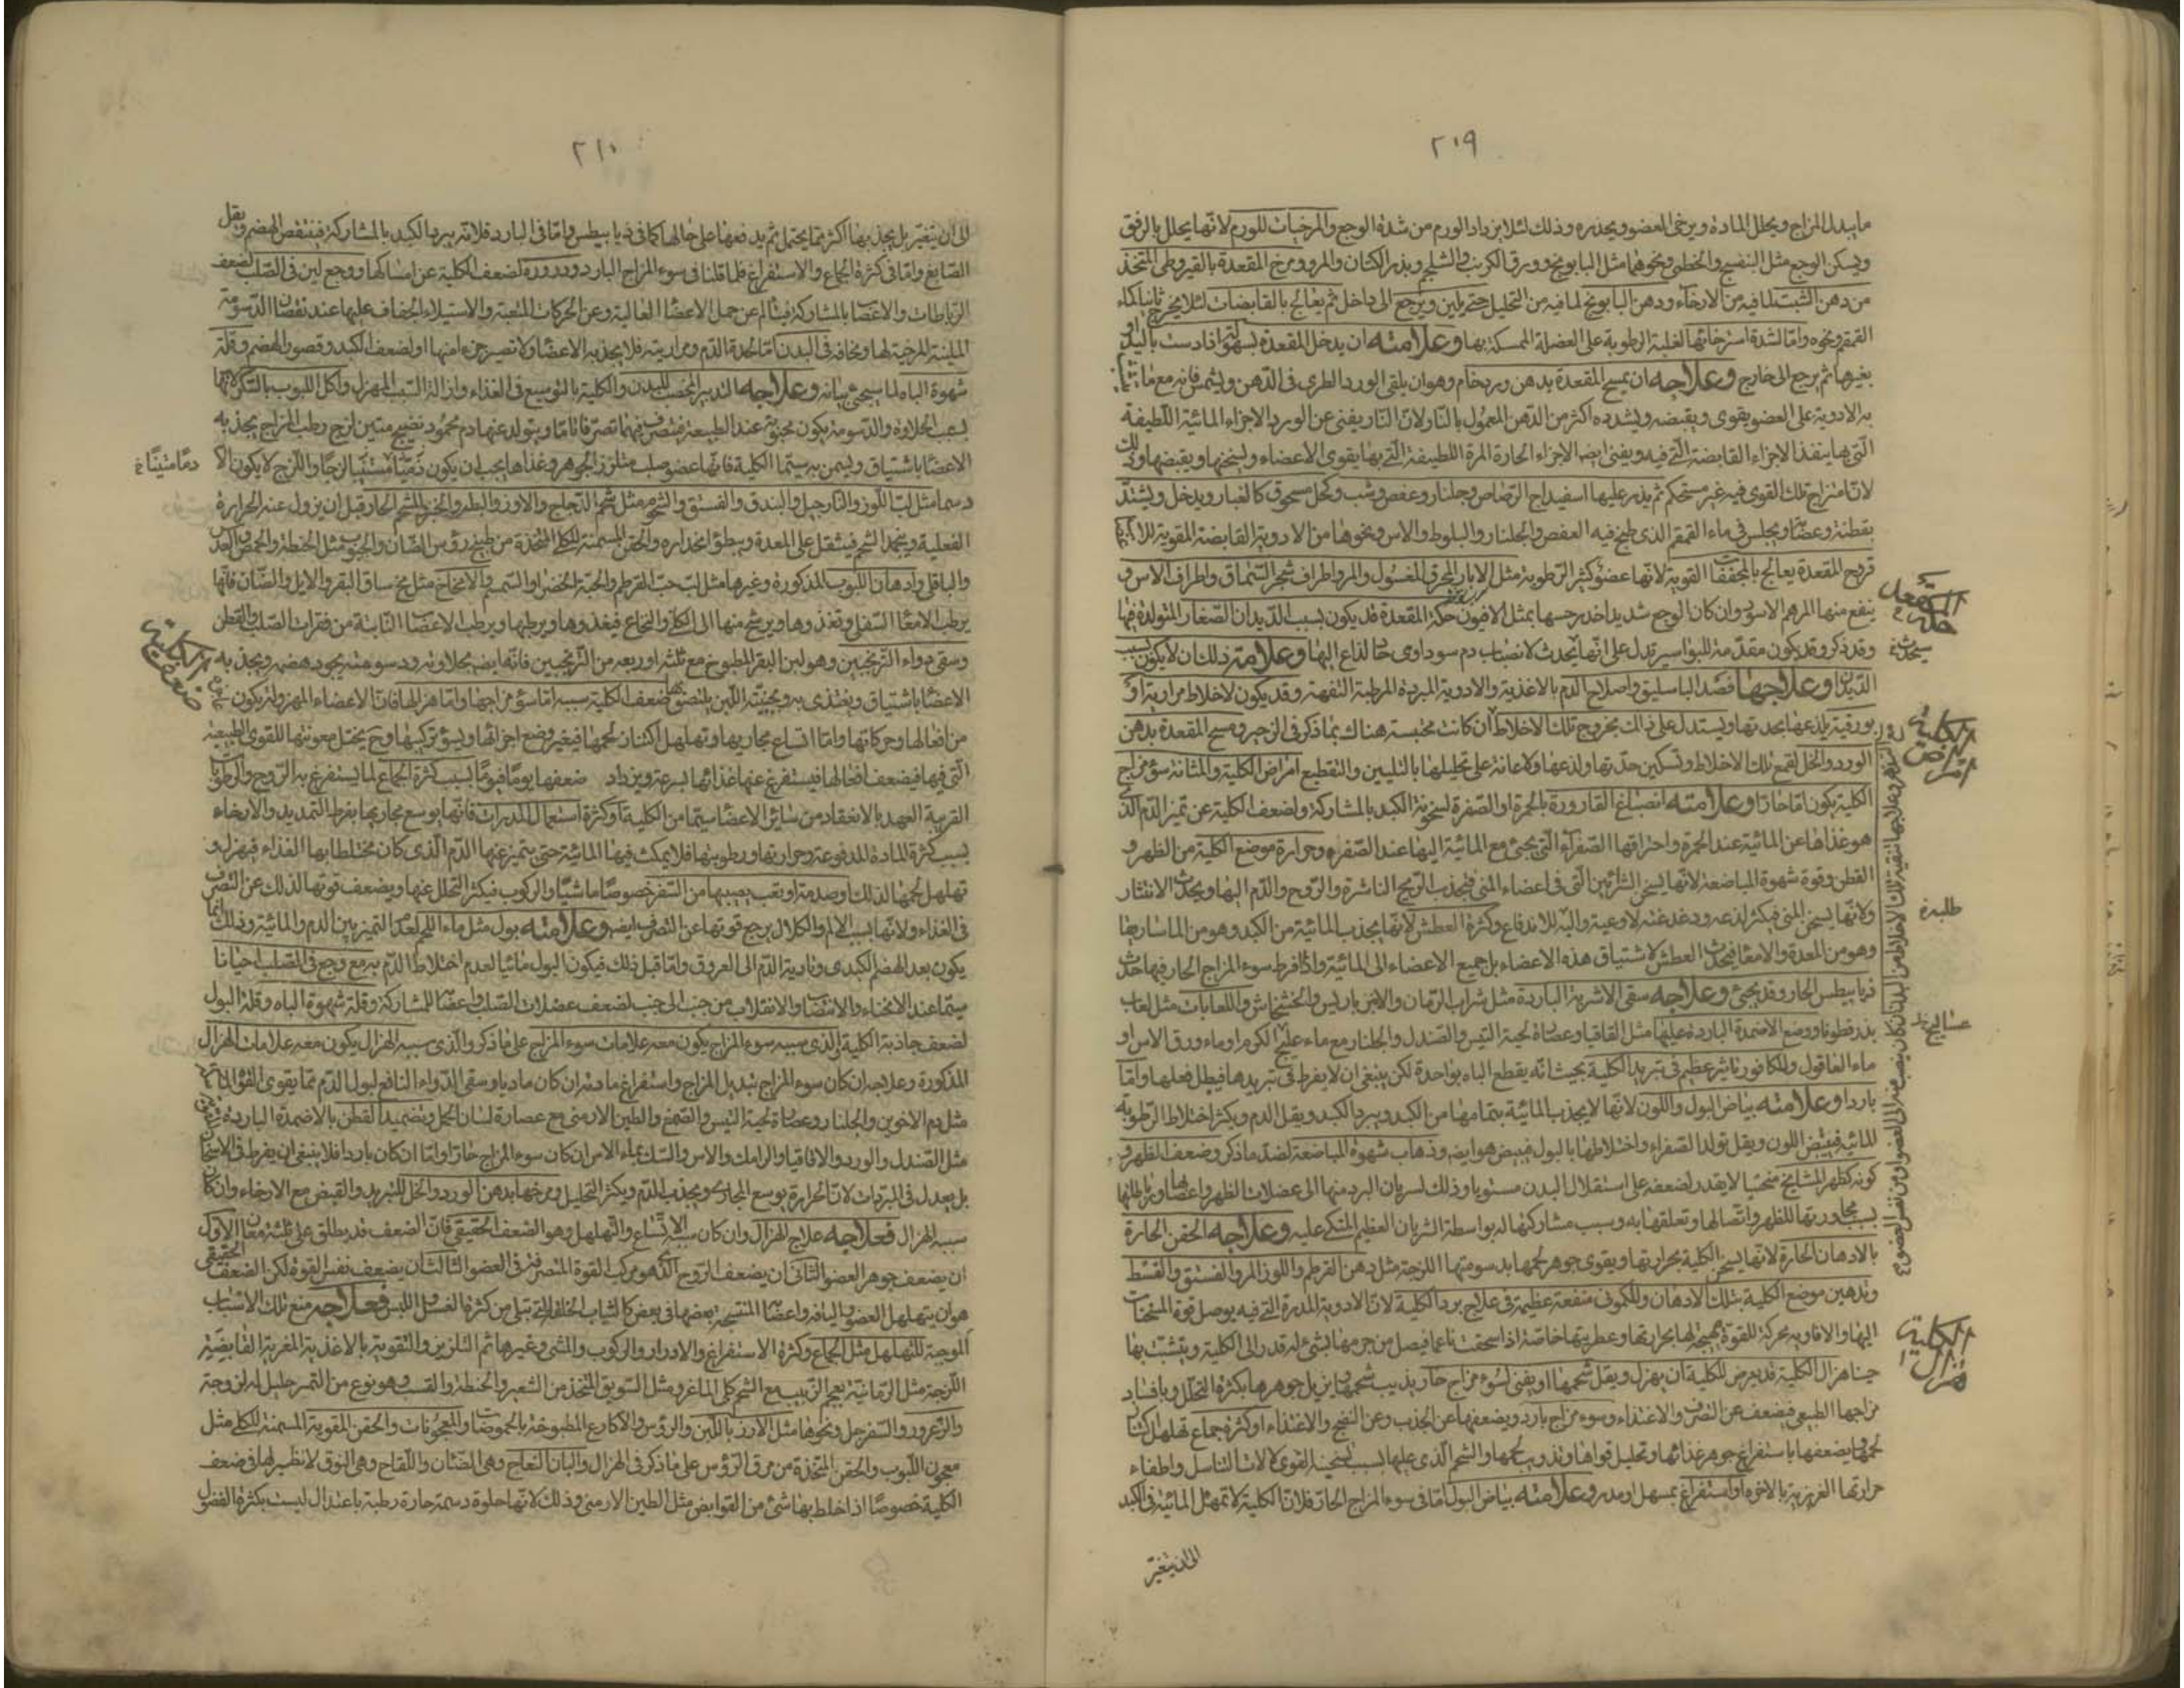 ٢٠٩
ما يبدل المزاج ويحلل المادة ويرخى العضو ويخدره وذلك لئلا يزداد الورم من شدة الوجع والمرخيات للورم لانها يحلل بالرفق
ويسكن الوجع مثل البنفسج والخطمى ونحوهما مثل البابونج وورق الكرنب والشلجم وبذر الكتان والمرو ومرخ المقعدة بالقيروطى المتخذ
من دهن الشبت لما فيه من الارخاء ودهن البابونج لما فيه من التحليل حتى يلين ويرجع الى داخل ثم يعالج بالقابضات لئلا يخرج ثانيا كماء
القمقم ونحوه واما لشدة استرخائها لغلبة الرطوبة على العضلة الممسكة بها وعلامته ان يدخل المقعدة بسهولة اذا دست باليد او
بغيرها ثم يرجع الى خارج وعلاجه ان يمسح المقعدة بدهن ورد خام وهو ان يلقى الورد الطرى فى الدهن ويشمس فانه مع
به الادوية على العضو يقوى ويقبضه ويشدده اكثر من الدهن المعمول بالنار لان النار يفنى عن الورد الاجزاء المائية اللطيفة
التى بها ينفذ الاجزاء القابضة التى فيه ويفنى ايضا الاجزاء الحارة المرة اللطيفة التى بها يقوى الاعضاء ويسخنها ويقبضها وذلك
لان امتزاج تلك القوى فيه غير مستحكم ثم يذر عليها اسفيداج الرصاص وجلنار وعفص وشب وكحل مسحوق كالغبار ويدخل ويشد
بقطنة وعصابة ويجلس فى ماء القمقم الذى طبخ فيه العفص والجلنار والبلوط والاس ونحوها من الادوية القابضة المقوية
قروح المقعدة يعالج بالمجففات القوية لانها عضو كثير الرطوبة مثل الابار المحرق المغسول والمر واطراف شجر السماق واطراف الاس و
ينفع منها المرهم الاسود وان كان الوجع شديدا خدر حسها بمثل الافيون حكة المقعدة قد يكون بسبب الديدان الصغار المتولدة فيها
وقد ذكر وقد يكون مقدمة للبواسير تدل على انها يحدث لانصباب دم سوداوى حاد لذاع اليها وعلامته ذلك ان لا يكون بسبب
الديدان وعلاجها فصد الباسليق واصلاح الدم بالاغذية والادوية المبردة المرطبة التفهة وقد يكون لاخلاط مرارية او
بورقية يلذعها بحدتها ويستدل على ذلك بخروج تلك الاخلاط ان كانت محتبسة هناك بما ذكر فى الزحير ومسح المقعدة بدهن
الورد والخل لقمع تلك الاخلاط وتسكين حدتها ولذعها ولاعانة على تحليلها بالتليين والتقطيع امراض الكلية والمثانة سوء مزاج
الكلية يكون اما حارا وعلامته انصباغ القارورة بالحمرة او الصفرة لسخونة الكبد بالمشاركة ولضعف الكلية عن تميز الدم الذى
هو غذاها عن المائية عند الحمرة واحتراقها الصفراء التى يجئ مع المائية اليها عند الصفرة وحرارة موضع الكلية من الظهر و
القطن وقوة شهوة المباضعة لانها يسخن الشرائين التى فى اعضاء المنى فيجذب الريح الناشرة والروح والدم اليها ويحدث الانتشار
ولانها يسخن المنى فيكثر لذعه ودغدغته لاوعية واليه للاندفاع وكثرة العطش لانها يجذب المائية من الكبد وهو من الماساريقا
وهو من المعدة والامعاء فيحدث العطش لاشتياق هذه الاعضاء بل جميع الاعضاء الى المائية واذا افرط سوء المزاج الحار فيها حدث
ذيابيطس الحار وقد يجئ وعلاجه سقى الاشربة الباردة مثل شراب الرمان والانبرباريس والخشخاش واللعابات مثل لعاب
بذر قطونا ووضع الاضمدة الباردة عليها مثل القاقيا وعصارة لحية التيس والصندل والجلنار مع ماء عليج الكرم او ماء ورق الاس او
ماء العاقول وللكافور تاثير عظيم فى تبريد الكلية بحيث انه يقطع الباه بواحدة لكن ينبغى ان لا يفرط فى تبريدها فيبطل فعلها واما
باردا وعلامته بياض البول واللون لانها لا يجذب المائية بتمامها من الكبد ويبرد الكبد ويقل الدم ويكثر اختلاط الرطوبة
المائية فيبيض اللون ويقل تولد الصفراء واختلاطها بالبول فيبيض هو ايضه وذهاب شهوة المباضعة لضد ما ذكر وضعف الظهر و
كونه كظهر المشايخ منحنيا لا يقدر لضعفه على استقلال البدن مستويا وذلك لسريان البرد منها الى عضلات الظهر واعصابها ورباطاتها
بسبب مجاورتها للظهر واتصالها وتعلقها به وبسبب مشاركتها له بواسطة الشريان العظيم المتكى عليه وعلاجه الحقن الحارة
بالادهان الحارة لانها يسخن الكلية بحرارتها ويقوى جوهر لحمها بدسومتها اللزجة مثل دهن القرطم واللوز المر والفستق والقسط
وتدهين موضع الكلية بتلك الادهان وللكمونى منفعة عظيمة فى علاج برد الكلية لان الادوية المدرة التى فيه يوصل قوة المسخنات
اليها والافاويه محركة للقوة مهيجة لها بحرارتها وعطريتها خاصة اذا سحقت ناعما فيصل من جرمها شئ له قدر الى الكلية ويتشبث بها
حينا هزال الكلية قد يعرض للكلية ان يهزل ويقل شحمها او يفنى لسوء مزاج حار يذيب شحمها ويزيل جوهرها بكثرة التحلل وبافساد
مزاجها الطبيعى فيضعف عن التصرف والاغتذاء وسوء مزاج بارد ويضعفها عن الجذب وعن النضج والاغتذاء او كثرة جماع تهلهل اكتناز
لحمها ويضعفها باستفراغ جوهر غذائها وتحليل قواها وتذويب لحمها والشحم الذى عليها بسبب تسخينه القوى لآلات التناسل واطفاء
حرارتها الغريزية بالاخرة او استفراغ بمسهل او مدر وعلامته بياض البول اما فى سوء المزاج الحار فلان الكلية لا تمهل المائية فى الكبد
الى ان يتغير
المقعدة
حكة
يحدث
الكلية
امراض
طلبة
عساليج
الكلية
هزال
٢١٠
الى ان يتغير بل يجذبها اكثر مما يحتمل ثم يدفعها على حالها كما فى ذيابيطس واما فى البارد فلانه يبرد الكبد بالمشاركة فينقص الهضم ويقل
الصابغ واما فى كثرة الجماع والاستفراغ فلما قلنا فى سوء المزاج البارد ودروره لضعف الكلية عن امساكها ووجع لين فى الصلب لضعف
الرباطات والاعصاب بالمشاركة فيتالم عن حمل الاعضاء العالية وعن الحركات المتعبة والاستيلاء الجفاف عليها عند نقصان الدسومة
الملينة المرخية لها ونحافة فى البدن اما لحدة الدم ومراريته فلا يجذبه الاعضاء ولا تصير جزء منها او لضعف الكبد وقصور الهضم وقلة
شهوة الباه لما سيجئ بيانه وعلاجه التدبير المخصب للبدن والكلية بالتوسيع فى الغذاء وازالة السبب المهزل واكل اللبوب بالسكر لانها
بسبب الحلاوة والدسومة يكون محبوبة عند الطبيعة فتتصرف فيها تصرفا تاما ويتولد عنها دم محمود نضيج متين لزج رطب المزاج يجذبه
الاعضاء باشتياق ويسمن به سيما الكلية فانها عضو صلب متلزز الجوهر وغذاها يجب ان يكون دهنيا متينا لزجا واللزج لا يكون الا
دسما مثل لب اللوز والنارجيل والبندق والفستق والشحوم مثل شحم الدجاج والاوز والبط والخبز بالشحم الحار قبل ان يزول عنه الحرارة
الفعلية ويتجمد الشحم فيثقل على المعدة ويبطؤ انحداره والحقن المسمنة للكلى المتخذة من طبيخ رؤس الضان والحبوب مثل الحنطة والحمص والعدس
والباقلى وادهان اللبوب المذكورة وغيرها مثل لب حب القرطم والحبة الخضراء والسمسم والامخاخ مثل مخ ساق البقر والايل والضان فانها
يرطب الامعاء السفلى وتغذوها ويرشح منها الى الكلى والنخاع فيغذوها ويرطبها ويرطب الاعصاب النابتة من فقرات الصلب والقطن
وسقى دواء الترنجبين وهو لبن البقر المطبوخ مع ثلثه او ربعه من الترنجبين فانها ايضه بحلاوته ودسومته يجود هضمه ويجذبه
الاعضاء باشتياق ويغتذى به وبجبنية اللبن يلتصق بها ضعف الكلية سببه اما سوء مزاجها واما هزالها فان الاعضاء المهزولة يكون
من افعالها وحركاتها واما اتساع مجاريها وتهلهل اكتناز لحمها فيتغير وضع اجزائها ويسوء تركيبها وح يختل معونتها للقوى الطبيعية
التى فيها فيضعف افعالها فيستفرغ عنها غذائها بسرعة ويزداد ضعفها يوما فيوما بسبب كثرة الجماع لما يستفرغ به الروح والرطوبات
القريبة العهد بالانعقاد من سائر الاعضاء سيما من الكلية او كثرة استعمال المدرات فانها يوسع مجاريها بفرط التمديد والارخاء
بسبب كثرة المادة المدفوعة وحرارتها ورطوبتها فلا يمكث فيها المائية حتى يتميز عنها الدم الذى كان مختلطا بها الغذاء فيهزل و
تهلهل لحمها لذلك او صدمة او تعب يصيبها من السفر خصوصا ماشيا والركوب فيكثر التحلل عنها ويضعف قوتها لذلك عن التصرف
فى الغذاء ولانها بسبب الالم والكلال يرجع قوتها عن التصرف ايضه وعلامته بول مثل ماء اللحم لعدم التميز بين الدم والمائية وذلك انما
يكون بعد الهضم الكبدى وتادية الدم الى العروق واما قبل ذلك فيكون البول مائيا لعدم اختلاط الدم به مع وجع فى الصلب احيانا
سيما عند الانحناء والانتصاب والانقلاب من جنب الى جنب لضعف عضلات الصلب واعصابه للمشاركة وقلة شهوة الباه وقلة البول
لضعف جاذبة الكلية والذى سببه سوء المزاج يكون معه علامات سوء المزاج على ما ذكر والذى سببه الهزال يكون معه علامات الهزال
المذكورة وعلاجه ان كان سوء المزاج تبديل المزاج واستفراغ مادته ان كان ماديا وسقى الدواء النافع لبول الدم مما يقوى القوة
مثل دم الاخوين والجلنار وعصارة لحية التيس والصمغ والطين الارمنى مع عصارة لسان الحمل وتضميد القطن بالاضمدة الباردة
مثل الصندل والورد والاقاقيا والرامك والاس والسك بماء الاس ان كان سوء المزاج حارا واما ان كان باردا فلا ينبغى ان يفرط فى الاسخان
بل يعدل فى المبردات لان الحرارة يوسع المجارى ويجذب الدم ويكثر التحليل ومرخها بدهن الورد والخل للتبريد والقبض مع الارخاء وان كان
سببه الهزال فعلاجه علاج الهزال وان كان سببه الاتساع والتهلهل وهو الضعف الحقيقى فان الضعف قد يطلق على ثلثة معان الاول
ان يضعف جوهر العضو الثانى ان يضعف الروح الذى هو مركب القوة المتصرفة فى العضو الثالث ان يضعف نفس القوة لكن الضعف الحقيقى
هو ان يتهلهل العضو واليافه واعصابه المنتسجة بعضها فى بعض كالثياب الخلقة التى تبلى من كثرة الغسل واللبس فعلاجه منع تلك الاسباب
الموجبة للتهلهل مثل الجماع وكثرة الاستفراغ والادرار والركوب والمشى وغيرها ثم التلزيز والتقوية بالاغذية المغرية القابضة
اللزجة مثل الرمانية بعجم الزبيب مع الشحم كلى الماعز ومثل السويق المتخذ من الشعير والحنطة والقسب وهو نوع من التمر جليل له لزوجة
والزعرور والسفرجل ونحوها مثل الارز باللبن والرؤس والاكارع المطبوخة بالحموضات والمعجونات والحقن المقوية المسمنة للكلى مثل
معجون اللبوب والحقن المتخذة من مرق الرؤس على ما ذكر فى الهزال والبان النعاج وهى الضان واللقاح وهى النوق لا نظير لها فى ضعف
الكلية خصوصا اذا خلط بها شئ من القوابض مثل الطين الارمنى وذلك لانها حلوة دسمة حارة رطبة باعتدال ليست بكثرة الفضول
دما متينا خ
الكلية
ضعف